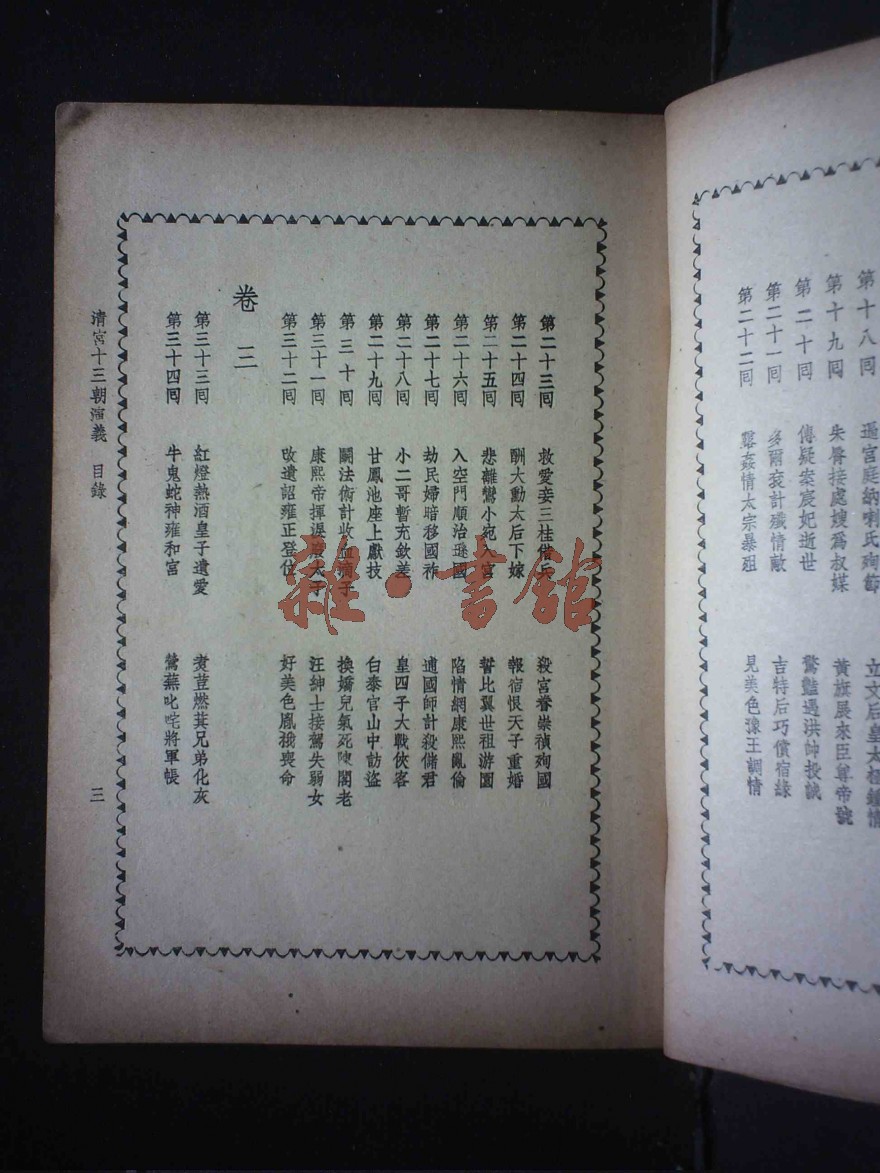 第十八回 逼宮庭納喇氏殉節 立文后皇太極鍾情
第十九回 朱脣接處嫂爲叔媒 黃旗展來臣尊帝號
第二十回 傳疑案宸妃逝世 驚豔遇洪帥投誠
第二十一回 多爾袞計殲情敵 吉特后巧償宿緣
第二十二回 姦情太宗暴殂 見美色豫王調情
第二十三回 救愛妾三桂借兵 殺宮眷崇禎殉國
第二十四回 酬大勳太后下嫁 報宿恨天子重婚
第二十五回 悲離鸞小宛入宮 誓比翼世祖游園
第二十六回 入空門順治遜國 陷情網康熙亂倫
第二十七回 劫民婦暗移國祚 逋國師計殺儲君
第二十八回 小二哥暫充欽差 皇四子大戰俠客
第二十九回 甘鳳池座上獻技 白泰官山中訪盜
第三十回 鬭法術計收血滴子 換嬌兒氣死陳閣老
第三十一回 康熙帝揮淚廢太子 汪紳士接駕失弱女
第三十二回 改遺詔雍正登位 好美色胤禩喪命
卷三
第三十三回 紅燈熱酒皇子遺愛 煮荳燃萁兄弟化灰
第三十四回 牛鬼蛇神雍和宮 鶯燕叱咤將軍帳
清宮十三朝演義 目錄
三
雜·書館